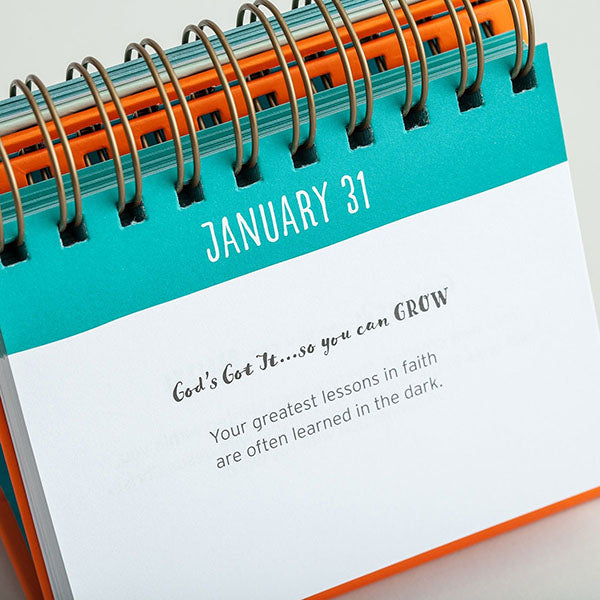 JANUARY 31
God's Got It...so you can GROW
Your greatest lessons in faith
are often learned in the dark.